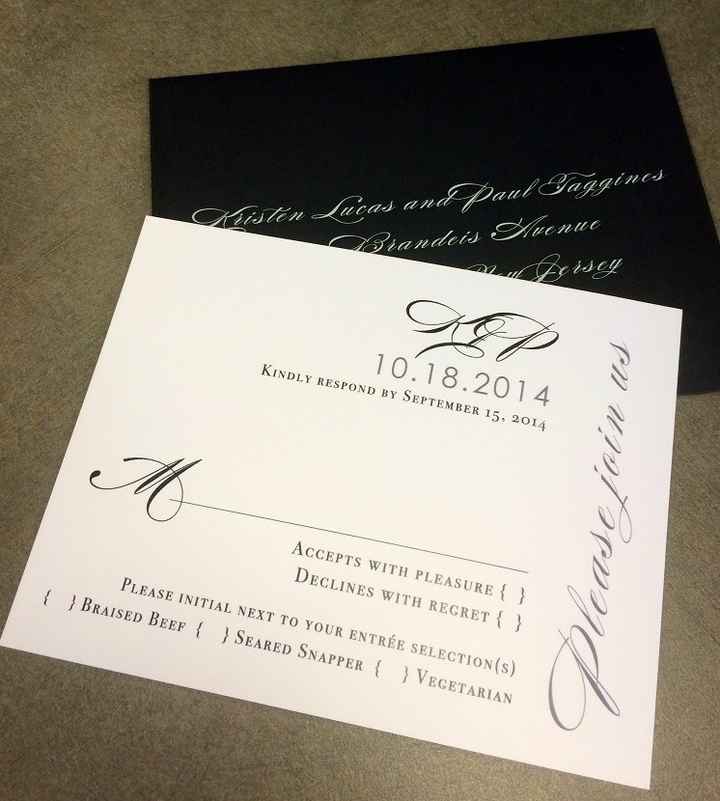 Kristen Lucas and Paul Taggines
Brandeis Avenue
New Jersey
K&P
10.18.2014
Kindly respond by September 15, 2014
M
Accepts with pleasure { }
Declines with regret { }
Please initial next to your entrée selection(s)
{ } Braised Beef { } Seared Snapper { } Vegetarian
Please join us